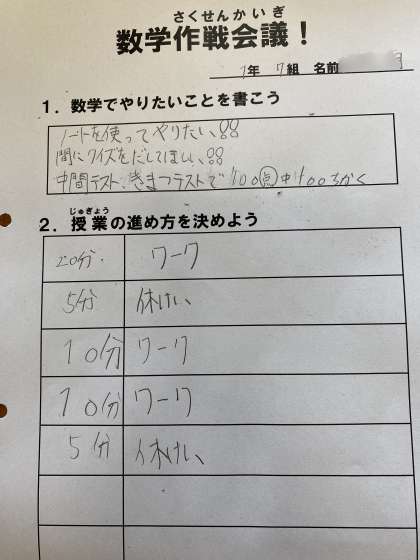 さくせんかいぎ
数学作戦会議！
1年 7組 名前
1．数学でやりたいことを書こう
ノートを使ってやりたい!!
間にクイズをだしてほしい!!
中間テスト、きまつテストで100点中100ちかく
じゅぎょう
2．授業の進め方を決めよう
20分. ワーク
5分 休けい
10分 ワーク
10分 ワーク
5分 休けい